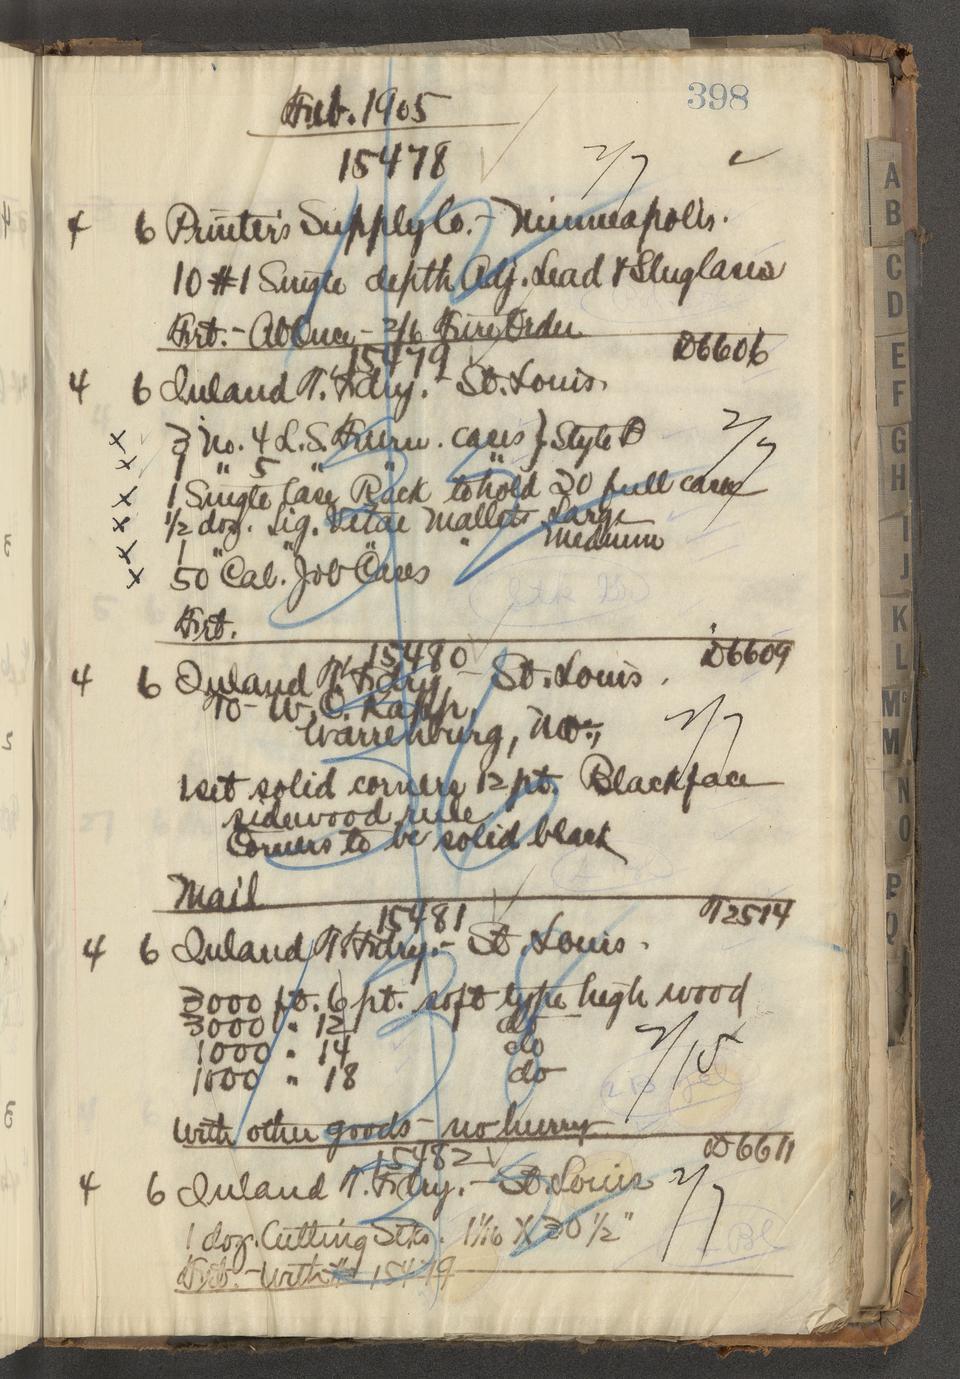 398
Feb. 1905
15478 2/7
4 6 Printer's Supply Co. - Minneapolis.
10 #1 Single depth Adj. Lead & Slug
Frt. - At Once - 2/6 Fire Order D6606
15479
4 6 Inland T. Fdry. - St. Louis.
3 No. 4 L.S. cases } Style D 2/7
1 " 5 " " "
1 Single Case Rack to hold 20 full cases
1/2 doz. Lig. Vitae Mallets Large
1 " " " " Medium
50 Cal. Job Cases
Frt. D6609
15480
4 6 Inland T. Fdry - St. Louis.
To - W. C. Kapp,
Warrenburg, Mo., 2/7
1 set solid corners 12 pt. Blackface
sidewood rule
Corners to be solid black
Mail T2514
15481
4 6 Inland T. Fdry. - St. Louis.
3000 ft. 6 pt. soft type high wood
3000 " 12 do
1000 " 14 do 2/15
1000 " 18 do
With other goods - no hurry D6611
15482
4 6 Inland T. Fdry. - St. Louis 2/7
1 doz. Cutting Stks. 1 1/16 X 30 1/2"
Frt. - With # 15479
A
B
C
D
E
F
G
H
I
J
K
L
Mc
M
N
O
P
Q